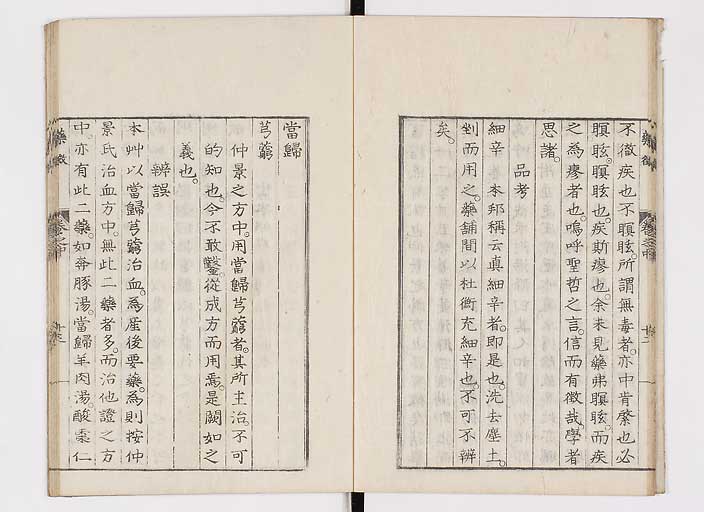 不徵疾也不瞑眩。所謂無毒者。亦中肯綮也必
瞑眩。瞑眩也。疾斯瘳也。余未見藥弗瞑眩。而疾
之爲瘳者也。嗚呼聖哲之言。信而有徵哉。學者
思諸。
品考
細辛 本邦稱云眞細辛者。即是也。洗去塵土。
剉而用之。藥舖間以杜衡充細辛也。不可不辨
矣。
當歸
芎藭
仲景之方中。用當歸芎藭者。其所主治。不可
的知也。今不敢鑿。從成方而用焉。是闕如之
義也。
辨誤
本艸以當歸芎藭治血。爲産後要藥。爲則按仲
景氏治血方中。無此二藥者多。而治他證之方
中。亦有此二藥。如奔豚湯。當歸羊肉湯。酸棗仁